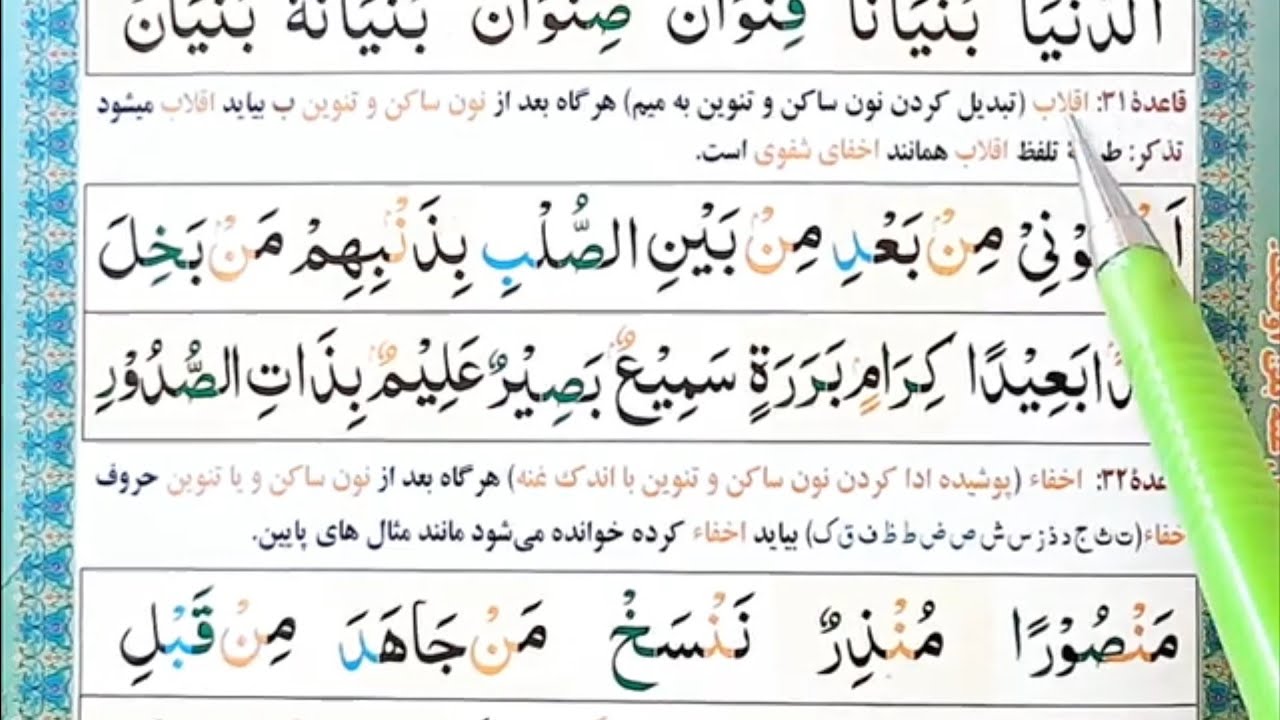 الدُّنْيَا بُنْيَانًا قِنْوَانٌ صِنْوَانٌ بُنْيَانَهُ بُنْيَانٌ
قاعدهٔ ۳۱: اقلاب (تبدیل کردن نون ساکن و تنوین به میم) هر گاه بعد از نون ساکن و تنوین ب بیاید اقلاب میشود
تذکر: تلفظ اقلاب همانند اخفای شفوی است.
مِنْۢ بَعْدِ مِنْۢ بَيْنِ الصُّلْبِ بِذَنْۢبِهِمْ مَنْۢ بَخِلَ
بَعِيْدًا كِرَامٍۢ بَرَرَةٍ سَمِيْعٌۢ بَصِيْرٌ عَلِيْمٌۢ بِذَاتِ الصُّدُوْرِ
۳۲: اخفاء (پوشیده ادا کردن نون ساکن و تنوین با اندک غنه) هر گاه بعد از نون ساکن و یا تنوین حروف
(ت ث ج د ذ ز س ش ص ض ط ظ ف ق ک) بیاید اخفاء کرده خوانده می‌شود مانند مثال های پایین.
مَنْصُوْرًا مُنْذِرٌ نَنْسَخْ مَنْ جَاهَدَ مِنْ قَبْلِ